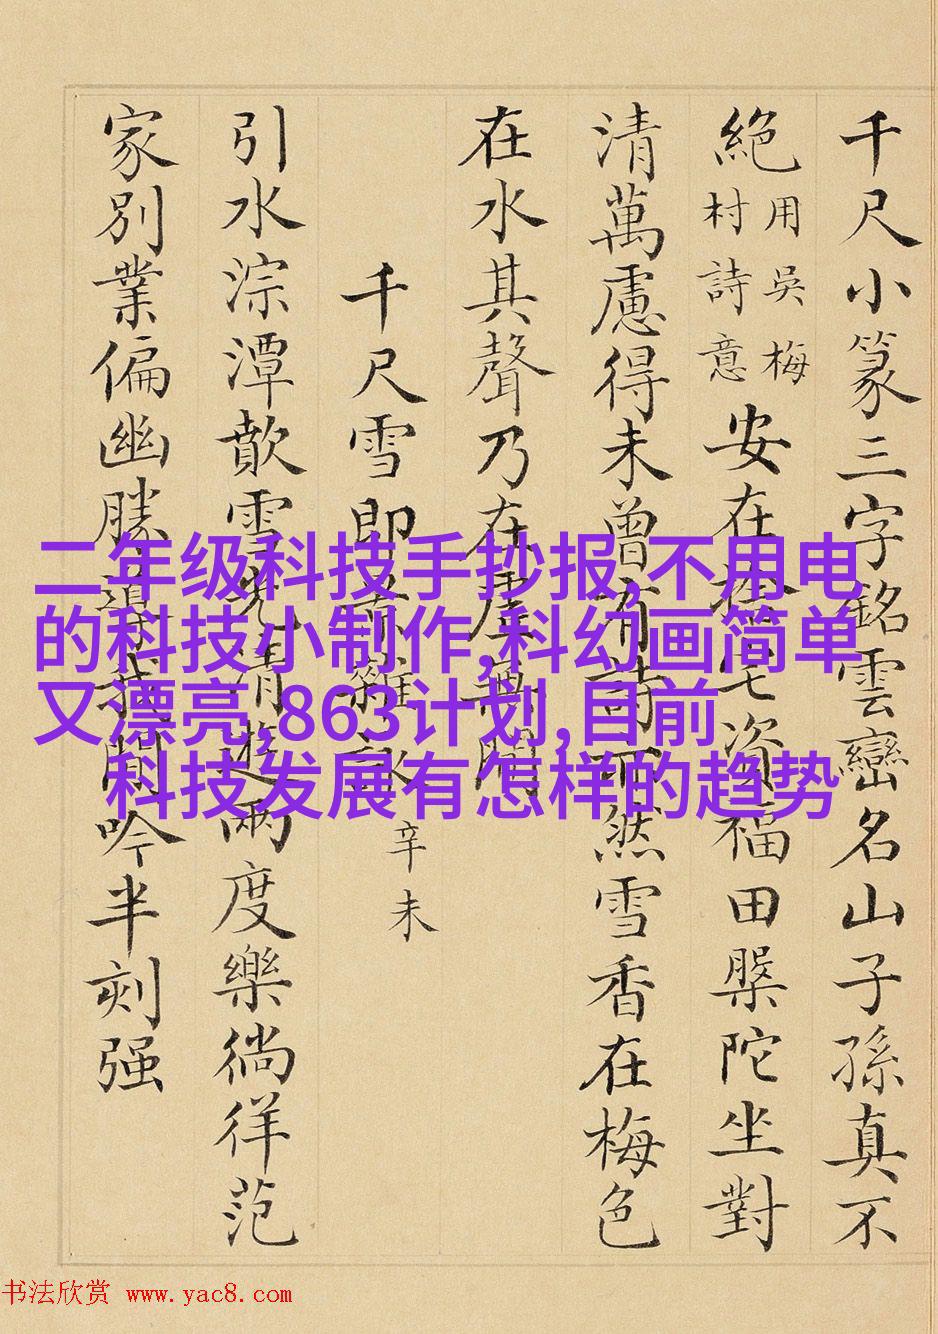 千尺小篆三字銘雲巒名山子孫真不
絕用吳梅
村詩意
安在宅資福田槃陀坐對
清萬慮得未曾有而然雪香在梅色
在水其聲乃在間
千尺雪即雜詠辛未
引水淙潭歕雪光清遊兩度樂徜徉范
家別業偏幽勝閒吟半刻强
二年级科技手抄报,不用电
的科技小制作,科幻画简单
又漂亮,863计划,目前
科技发展有怎样的趋势
书法欣赏 www.yac8.com